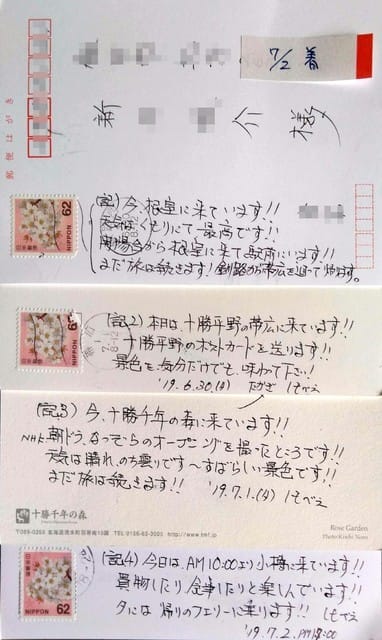 郵便はがき
7/2 着
新
介 様
62
日本郵便
NIPPON
(記1) 今、根室に来ています!!
天気はくもりにて最高です!!
開陽台から根室に来て駅前にいます!!
まだ旅は続きます! 釧路から帯広を通って帰ります。
日本郵便
NIPPON
(記2) 本日は、十勝平野の帯広に来ています!!
十勝平野のポストカードを送ります!!
景色を気分だけでも、味わって下さい!
'19.6.30.(日)
(記3) 今、十勝千年の森に来ています!!
NHK 朝ドラ、なつぞらのオープニングを撮ったところです!!
天気は晴れ、のち曇りです〜すばらしい景色です!!
まだ旅は続きます!!
'19.7.1.(月) しもべえ
十勝千年の森
http://www.tmf.jp
Rose Garden
62
日本郵便
NIPPON
(記4) 今日は、AM10:00より小樽に来ています!!
買物したり、食事したりと楽しんでいます!!
夕には帰りのフェリーに乗ります!! しもべえ
'19.7.2.